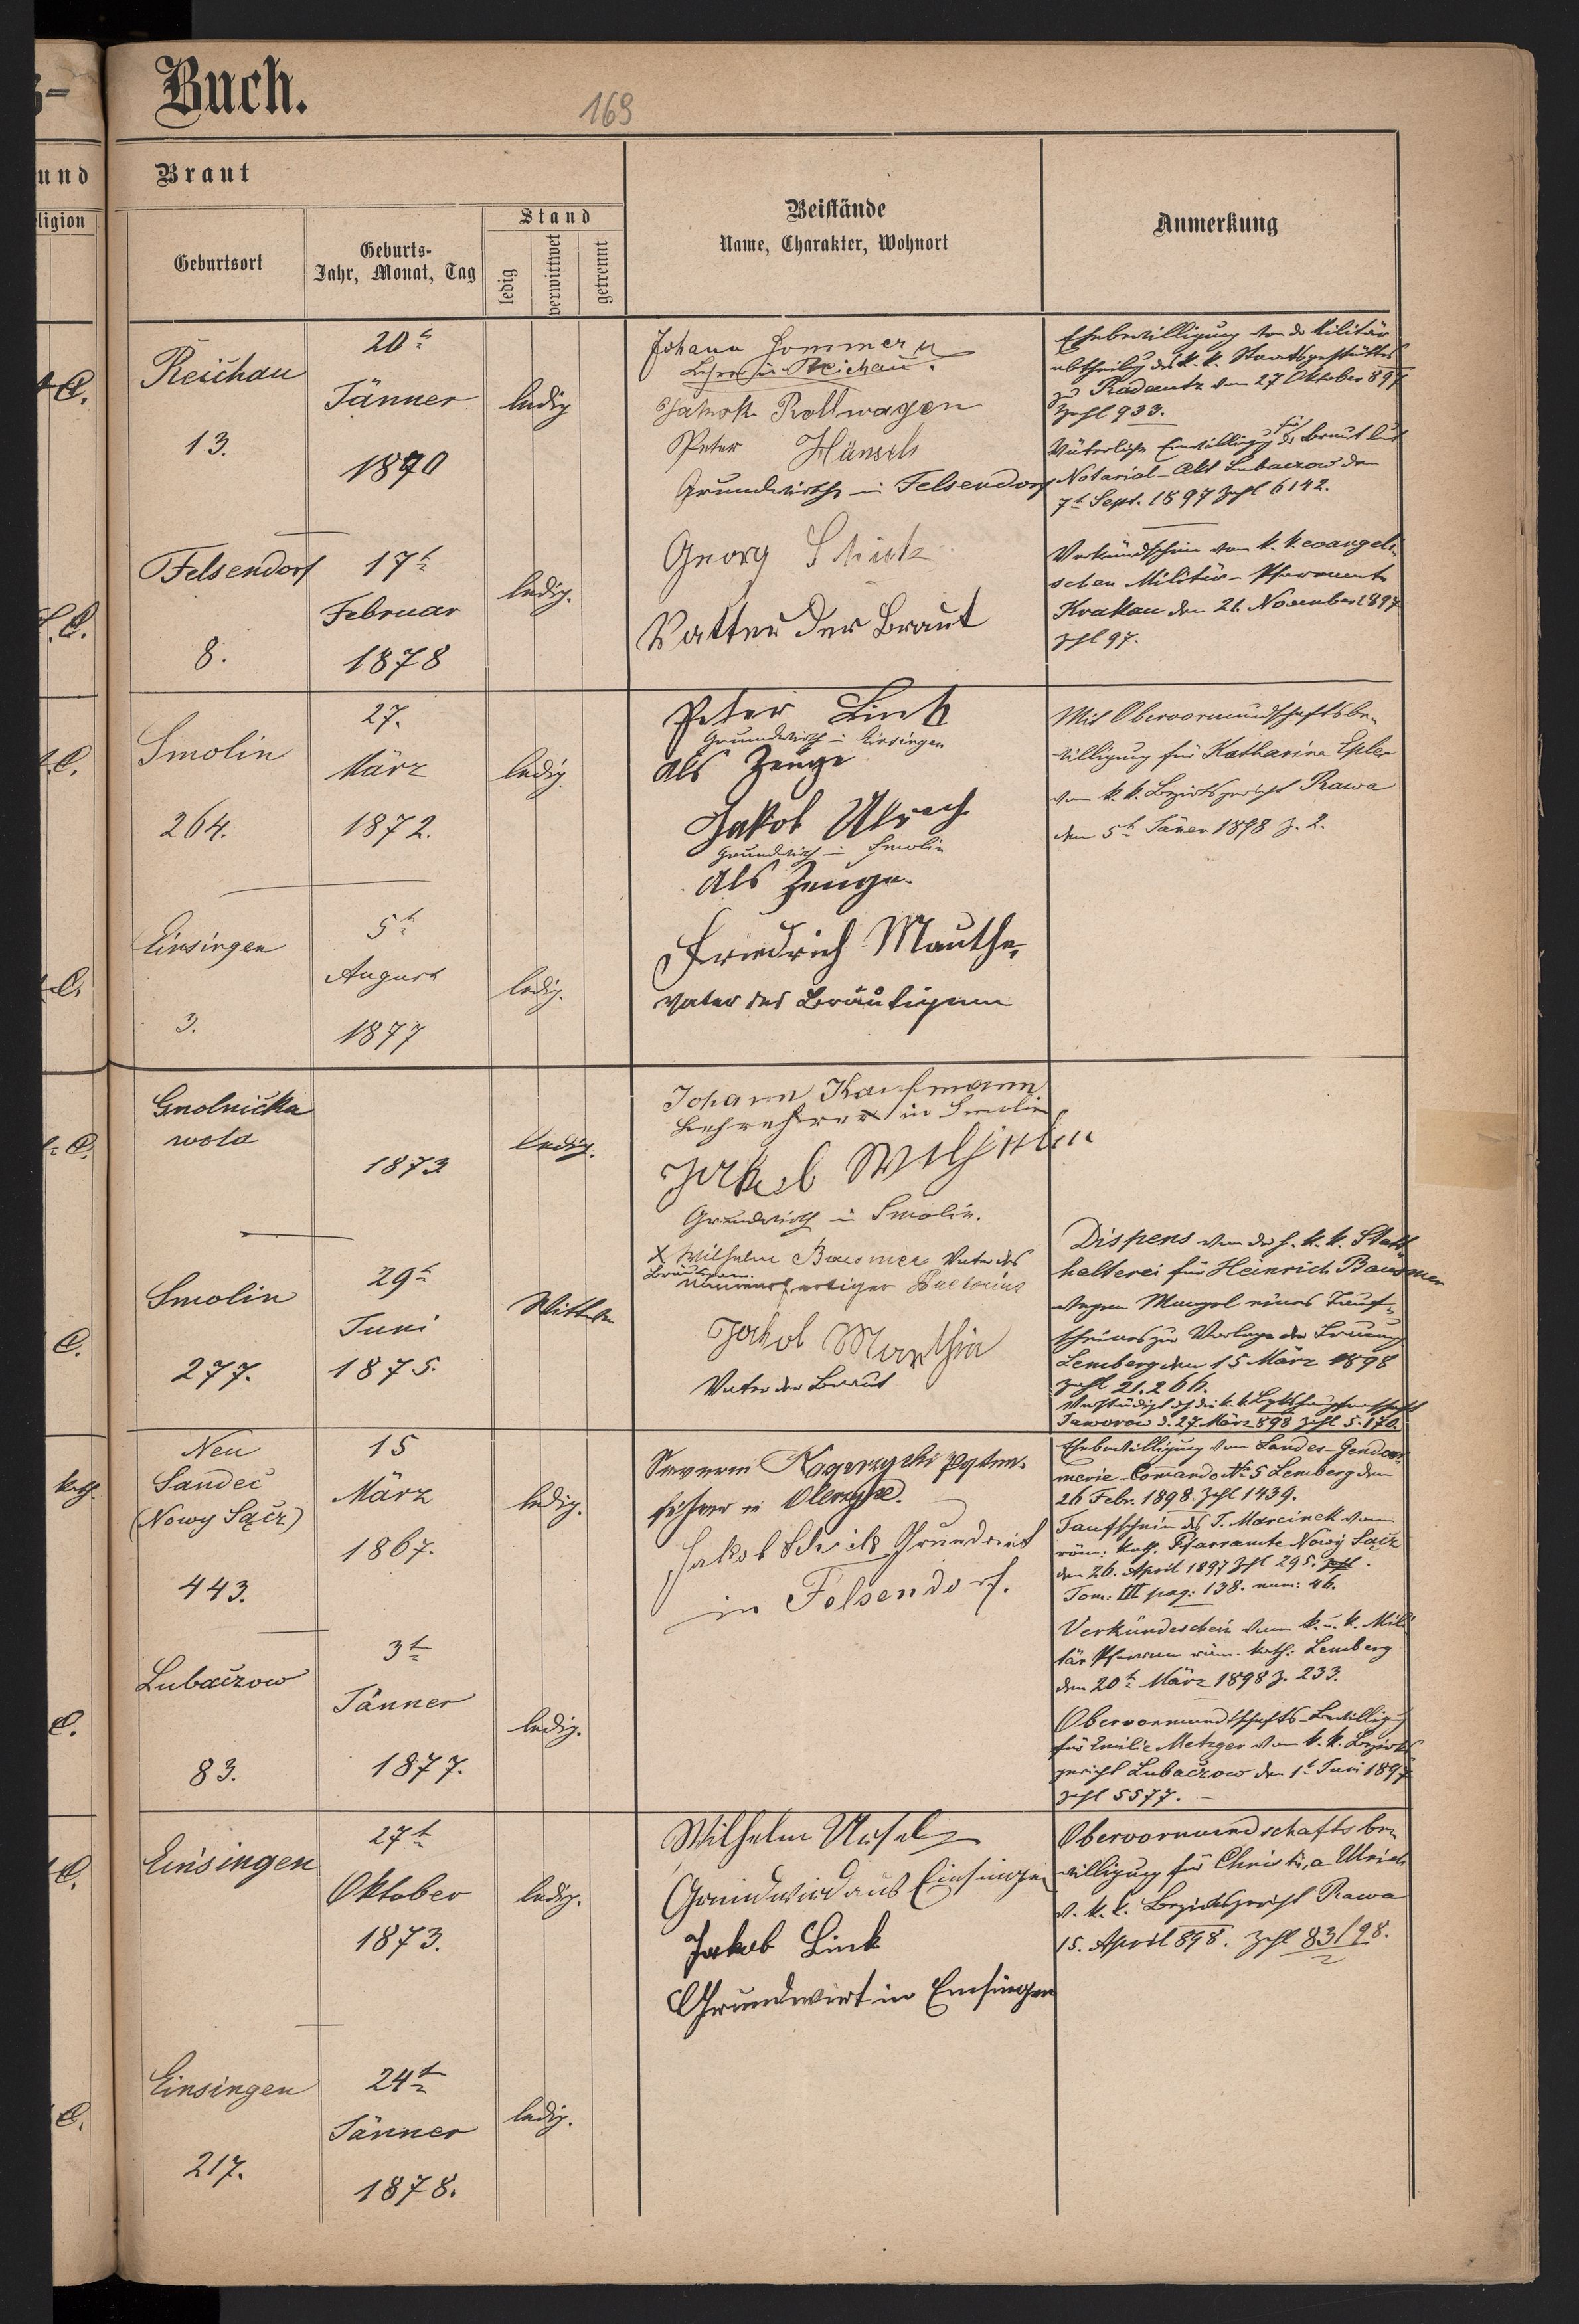 Buch.
169
und
Braut
ligion
Geburtsort
Geburts-
Jahr, Monat, Tag
Stand
ledig
verwittwet
getrennt
Beistände
Name, Charakter, Wohnort
Anmerkung
Reichau
13.
20t
Jänner
1890
ledig
Johann Sommer
Lehrer in Reichau.
Jakob Rollwagen
Peter Hänsch
Grundwirthe in Felsendorf
Ehebewilligung von der Militär
abtheilung des k. k. Staatsgestüttes
zu Radautz vom 27 Oktober 897
Zahl 933.
Väterliche Einwilligung für die Braut laut
Notarial-Akt Lubaczow den
7t Sept. 1897 Zahl 6142.
Felsendorf
8.
17t
Februar
1878
ledig.
Georg Schick
Vatter der Braut
Verkündschein vom k. k. evangeli-
schen Militär-Pfarramte
Krakau den 21. November 1897
Zhl 97.
Smolin
264.
27.
März
1872.
ledig
Peter Link
Grundwirth in Einsingen
als Zeuge
Jakob Ulrich
Grundwirth in Smolin
Als Zeuge.
Mit Obervormundschaftsbe-
willigung für Katharina Epler
vom k. k. Bezirksgericht Rawa
den 5t Jäner 1898 Z. 2.
Einsingen
3.
5t
August
1877
ledig.
Friedrich Mauthe,
Vater des Bräutigam
Gnolnička
wola
1873
ledig.
Johann Kaufmann
Lehrer in Smolin
Jakob
Grundwirth in Smolin.
Smolin
277.
29t
Juni
1875.
Wittwe
X Wilhelm Bausmer Vater des
Bräutigam.
Jakob Marthin
Vater der Braut
Dispens von der h. k. k. Statt-
halterei für Heinrich Bausmer
wegen Mangel eines Tauf-
scheines zur Vorlage der Trauung
Lemberg den 15 März 1898
Zahl 21.266.
Jaworow d. 27 März 898 Zhl 5.170.
Neu
Sandeč
(Nowy Sącz)
443.
15
März
1867.
ledig.
Severin
führer in Oleszyce.
Jakob Schick Grundwirt
in Felsendorf.
Ehebewilligung vom Landes-Gendar-
merie-Comando No 5 Lemberg den
26 Febr. 1898. Zhl 1439.
Taufschein des J. Marcinek vom
röm: kath. Pfarramte Nowy Sącz
den 26. April 1897 Zhl 295.
Tom: III pag: 138. num: 46.
Verkündeschein vom k. u. k. Mili
tär Pfarram röm. kath: Lemberg
den 20t März 1898 Z. 233.
Lubaczow
83.
3t
Jänner
1877.
ledig.
Obervormundtschafts-Bewilligung
für Emilie Metzger vom k. k. Bezirks
gericht Lubaczow den 1t Juni 1897
Zahl 5577.
Einsingen
27t
Oktober
1873.
ledig.
Wilhelm
Grundwird aus Einsingen
Jakob Link
Grundwirt in Einsingen
Obervormundschaftsbe-
willigung für Christina Ulrich
v. k. k. Bezirksgericht Rawa
15. April 898. Zhl 83/98.
Einsingen
217.
24t
Jänner
1878.
ledig.